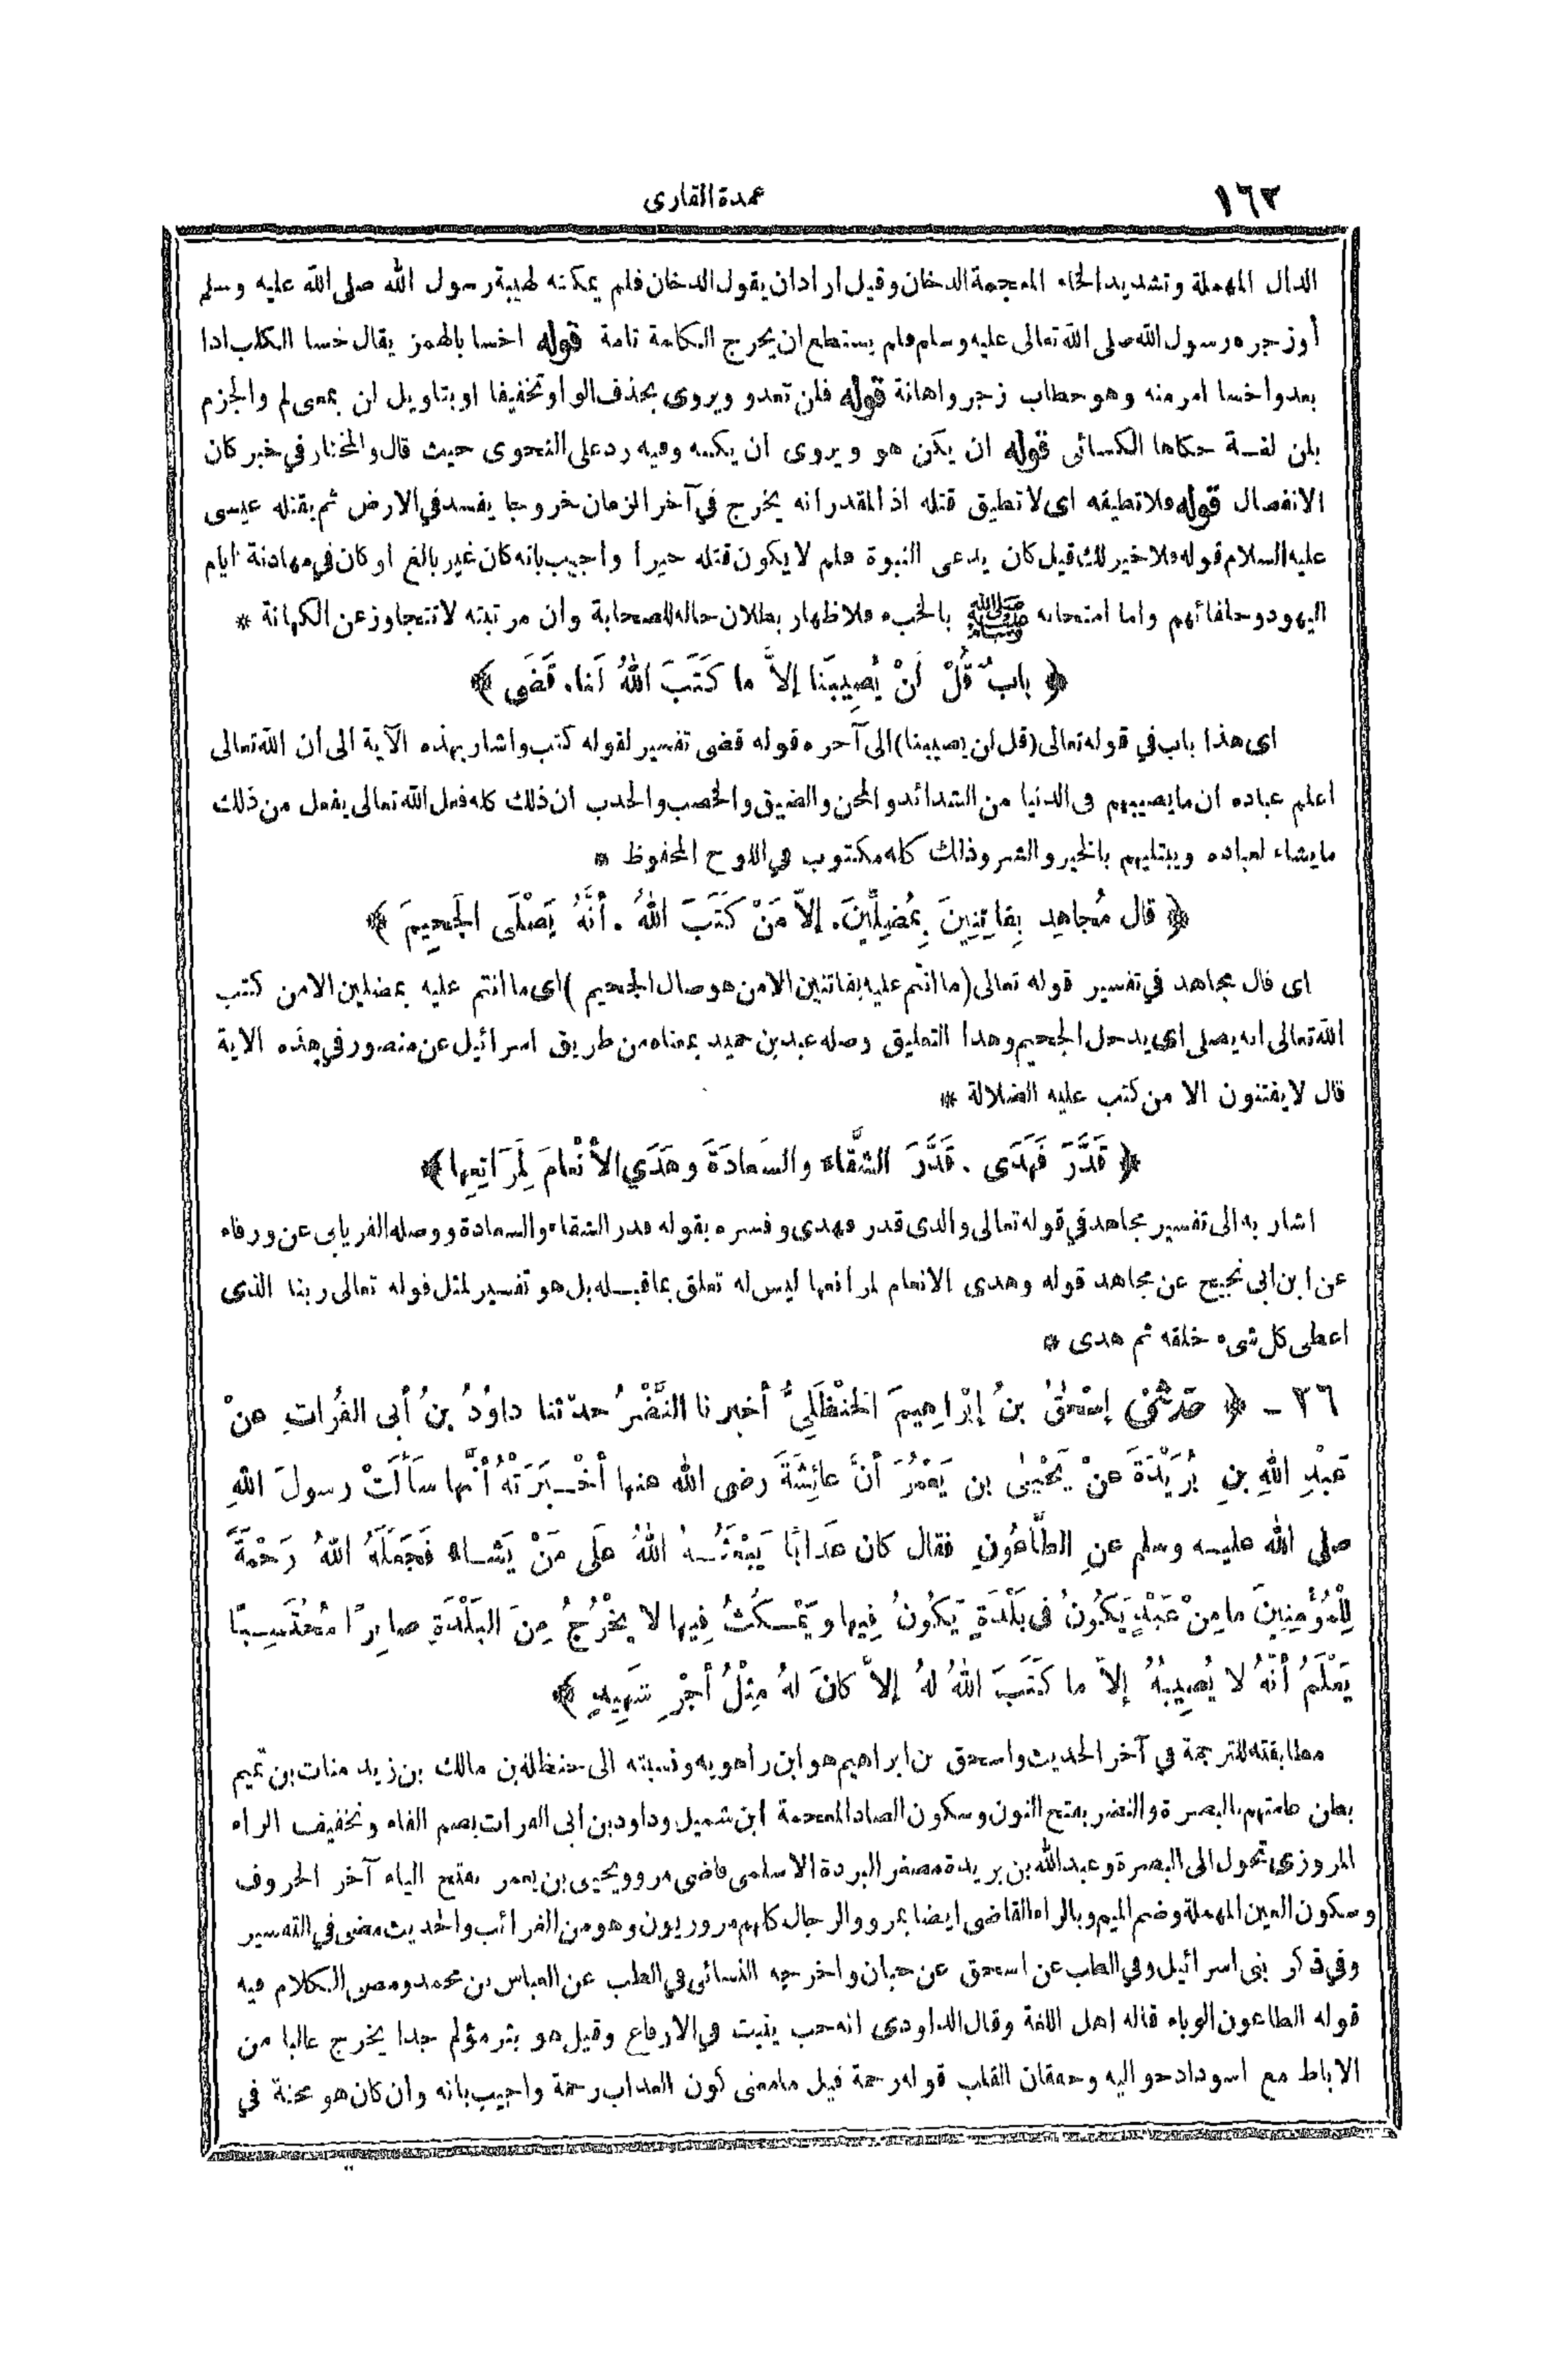 ١٦٢ عمدة القارى
الدال المهملة وتشديد الخاء المعجمة الدخان وقيل ارادان يقول الدخان فلم يمكنه لهيبة رسول الله صلى الله عليه وسلم
أوزجره رسول الله صلى الله تعالى عليه وسلم فلم يستطع ان يخرج الكلمة تامة قوله اخسا بالهمز يقال خسا الكلب اذا
بعد واخسا امر منه وهو خطاب زجر واهانة قوله فلن تعدو ويروى بحذف الواو تخفيفا او بتاويل لن بمعنى لم والجزم
بلن لغة حكاها الكسائى قوله ان يكن هو ويروى ان يكنه وفيه رد على النحوى حيث قال والمختار في خبر كان
الانفصال قوله فلا تطيقه اى لا تطيق قتله اذ المقدر انه يخرج في آخر الزمان خروجا يفسد في الارض ثم يقتله عيسى
عليه السلام قوله فلا خير لك قيل كان يدعى النبوة فلم لا يكون قتله خيرا واجيب بانه كان غير بالغ او كان في مهادنة ايام
اليهود وحلفائهم واما امتحانه ﷺ بالخبء فلاظهار بطلان حاله للصحابة وان مرتبته لا تتجاوز عن الكهانة *
﴿ بابٌ قُلْ لَنْ يُصِيبَنَا إلاَّ ما كَتَبَ اللهُ لَنا. قَضَى ﴾
اى هذا باب في قوله تعالى (قل لن يصيبنا) الى آخره قوله قضى تفسير لقوله كتب واشار بهذه الآية الى أن الله تعالى
اعلم عباده ان ما يصيبهم فى الدنيا من الشدائد والمحن والضيق والخصب والجدب ان ذلك كله فعل الله تعالى يفعل من ذلك
ما يشاء لعباده ويبتليهم بالخير والشر وذلك كله مكتوب في اللوح المحفوظ *
﴿ قال مُجاهِد بِفاتِنِينَ بِمُضِلِّينَ. إلاّ مَنْ كَتَبَ اللهُ . أنَّهُ يَصْلَى الجَحِيمَ ﴾
اى قال مجاهد في تفسير قوله تعالى (ما انتم عليه بفاتنين الا من هو صال الجحيم ) اى ما انتم عليه بمضلين الا من كتب
الله تعالى انه يصلى اى يدخل الجحيم وهذا التعليق وصله عبد بن حميد بمعناه من طريق اسرائيل عن منصور في هذه الاية
قال لا يفتنون الا من كتب عليه الضلالة *
﴿ قَدَّرَ فَهَدَى . قَدَّرَ الشَّقاء والسَعادَةَ وهَدَي الأنْعامَ لِمَرَاتِعِها ﴾
اشار به الى تفسير مجاهد في قوله تعالى والذى قدر فهدى وفسره بقوله قدر الشقاء والسعادة ووصله الفريابى عن ورقاء
عن ابن ابى نجيح عن مجاهد قوله وهدى الانعام لمراتعها ليس له تعلق بما قبله بل هو تفسير لمثل قوله تعالى ربنا الذى
اعطى كل شىء خلقه ثم هدى *
٢٦ - ﴿ حَدَّثَنِي إسْحٰقُ بنُ إبْرَاهِيمَ الحَنْظَلِيُّ أخبرنا النَّضْرُ حدّثنا داوُدُ بنُ أبى الفُراتِ عنْ
عَبْدِ اللهِ بنِ بُرَيْدَةَ عنْ يَحْيىٰ بن يَعْمُرَ أنَّ عائِشَةَ رضى الله عنها أخْبَرَتْهُ أنَّها سَألَتْ رسولَ اللهِ
صلى الله عليه وسلم عنِ الطَّاعُونِ فقال كان عَذَابًا يَبْعَثُهُ اللهُ علَى مَنْ يَشاءُ فَجَعَلَهُ اللهُ رَحْمَةً
لِلْمُؤْمِنِينَ ما مِنْ عَبْدٍ يَكُونُ فى بَلْدَةٍ يَكُونُ فِيها ويَمْكُثُ فِيها لا يخْرُجُ مِنَ البَلْدَةِ صابِرًا مُحْتَسِبًا
يَعْلَمُ أنَّهُ لا يُصِيبُهُ إلاّ ما كَتَبَ اللهُ لهُ إلاَّ كانَ لهُ مِثْلُ أجْرِ شَهِيدٍ ﴾
مطابقته للترجمة في آخر الحديث واسحق بن ابراهيم هو ابن راهويه ونسبته الى حنظلة بن مالك بن زيد منات بن تميم
بطن عامتهم بالبصرة والنضر بفتح النون وسكون الضاد المعجمة ابن شميل وداود بن ابى الفرات بضم الفاء وتخفيف الراء
المروزى تحول الى البصرة وعبد الله بن بريدة مصغر البردة الاسلمى قاضى مرو ويحيى بن يعمر بفتح الياء آخر الحروف
وسكون العين المهملة وضم الميم وبالراء القاضى ايضا بمرو والرجال كلهم مروريون وهو من الغرائب والحديث مضى في التفسير
وفي ذكر بنى اسرائيل وفي الطب عن اسحق عن حبان واخرجه النسائى في الطب عن العباس بن محمد ومضى الكلام فيه
قوله الطاعون الوباء قاله اهل اللغة وقال الداودى انه حب ينبت في الارفاع وقيل هو بثر مؤلم جدا يخرج غالبا من
الاباط مع اسوداد حواليه وخفقان القلب قوله رحمة قيل ما معنى كون العذاب رحمة واجيب بانه وان كان هو محنة في